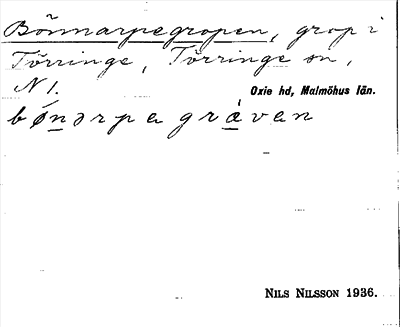 Bönnarpegropen, grop i
Törringe, Törringe sn,
N 1.
Oxie hd, Malmöhus län.
bǿnərpagrávan
NILS NILSSON 1936.